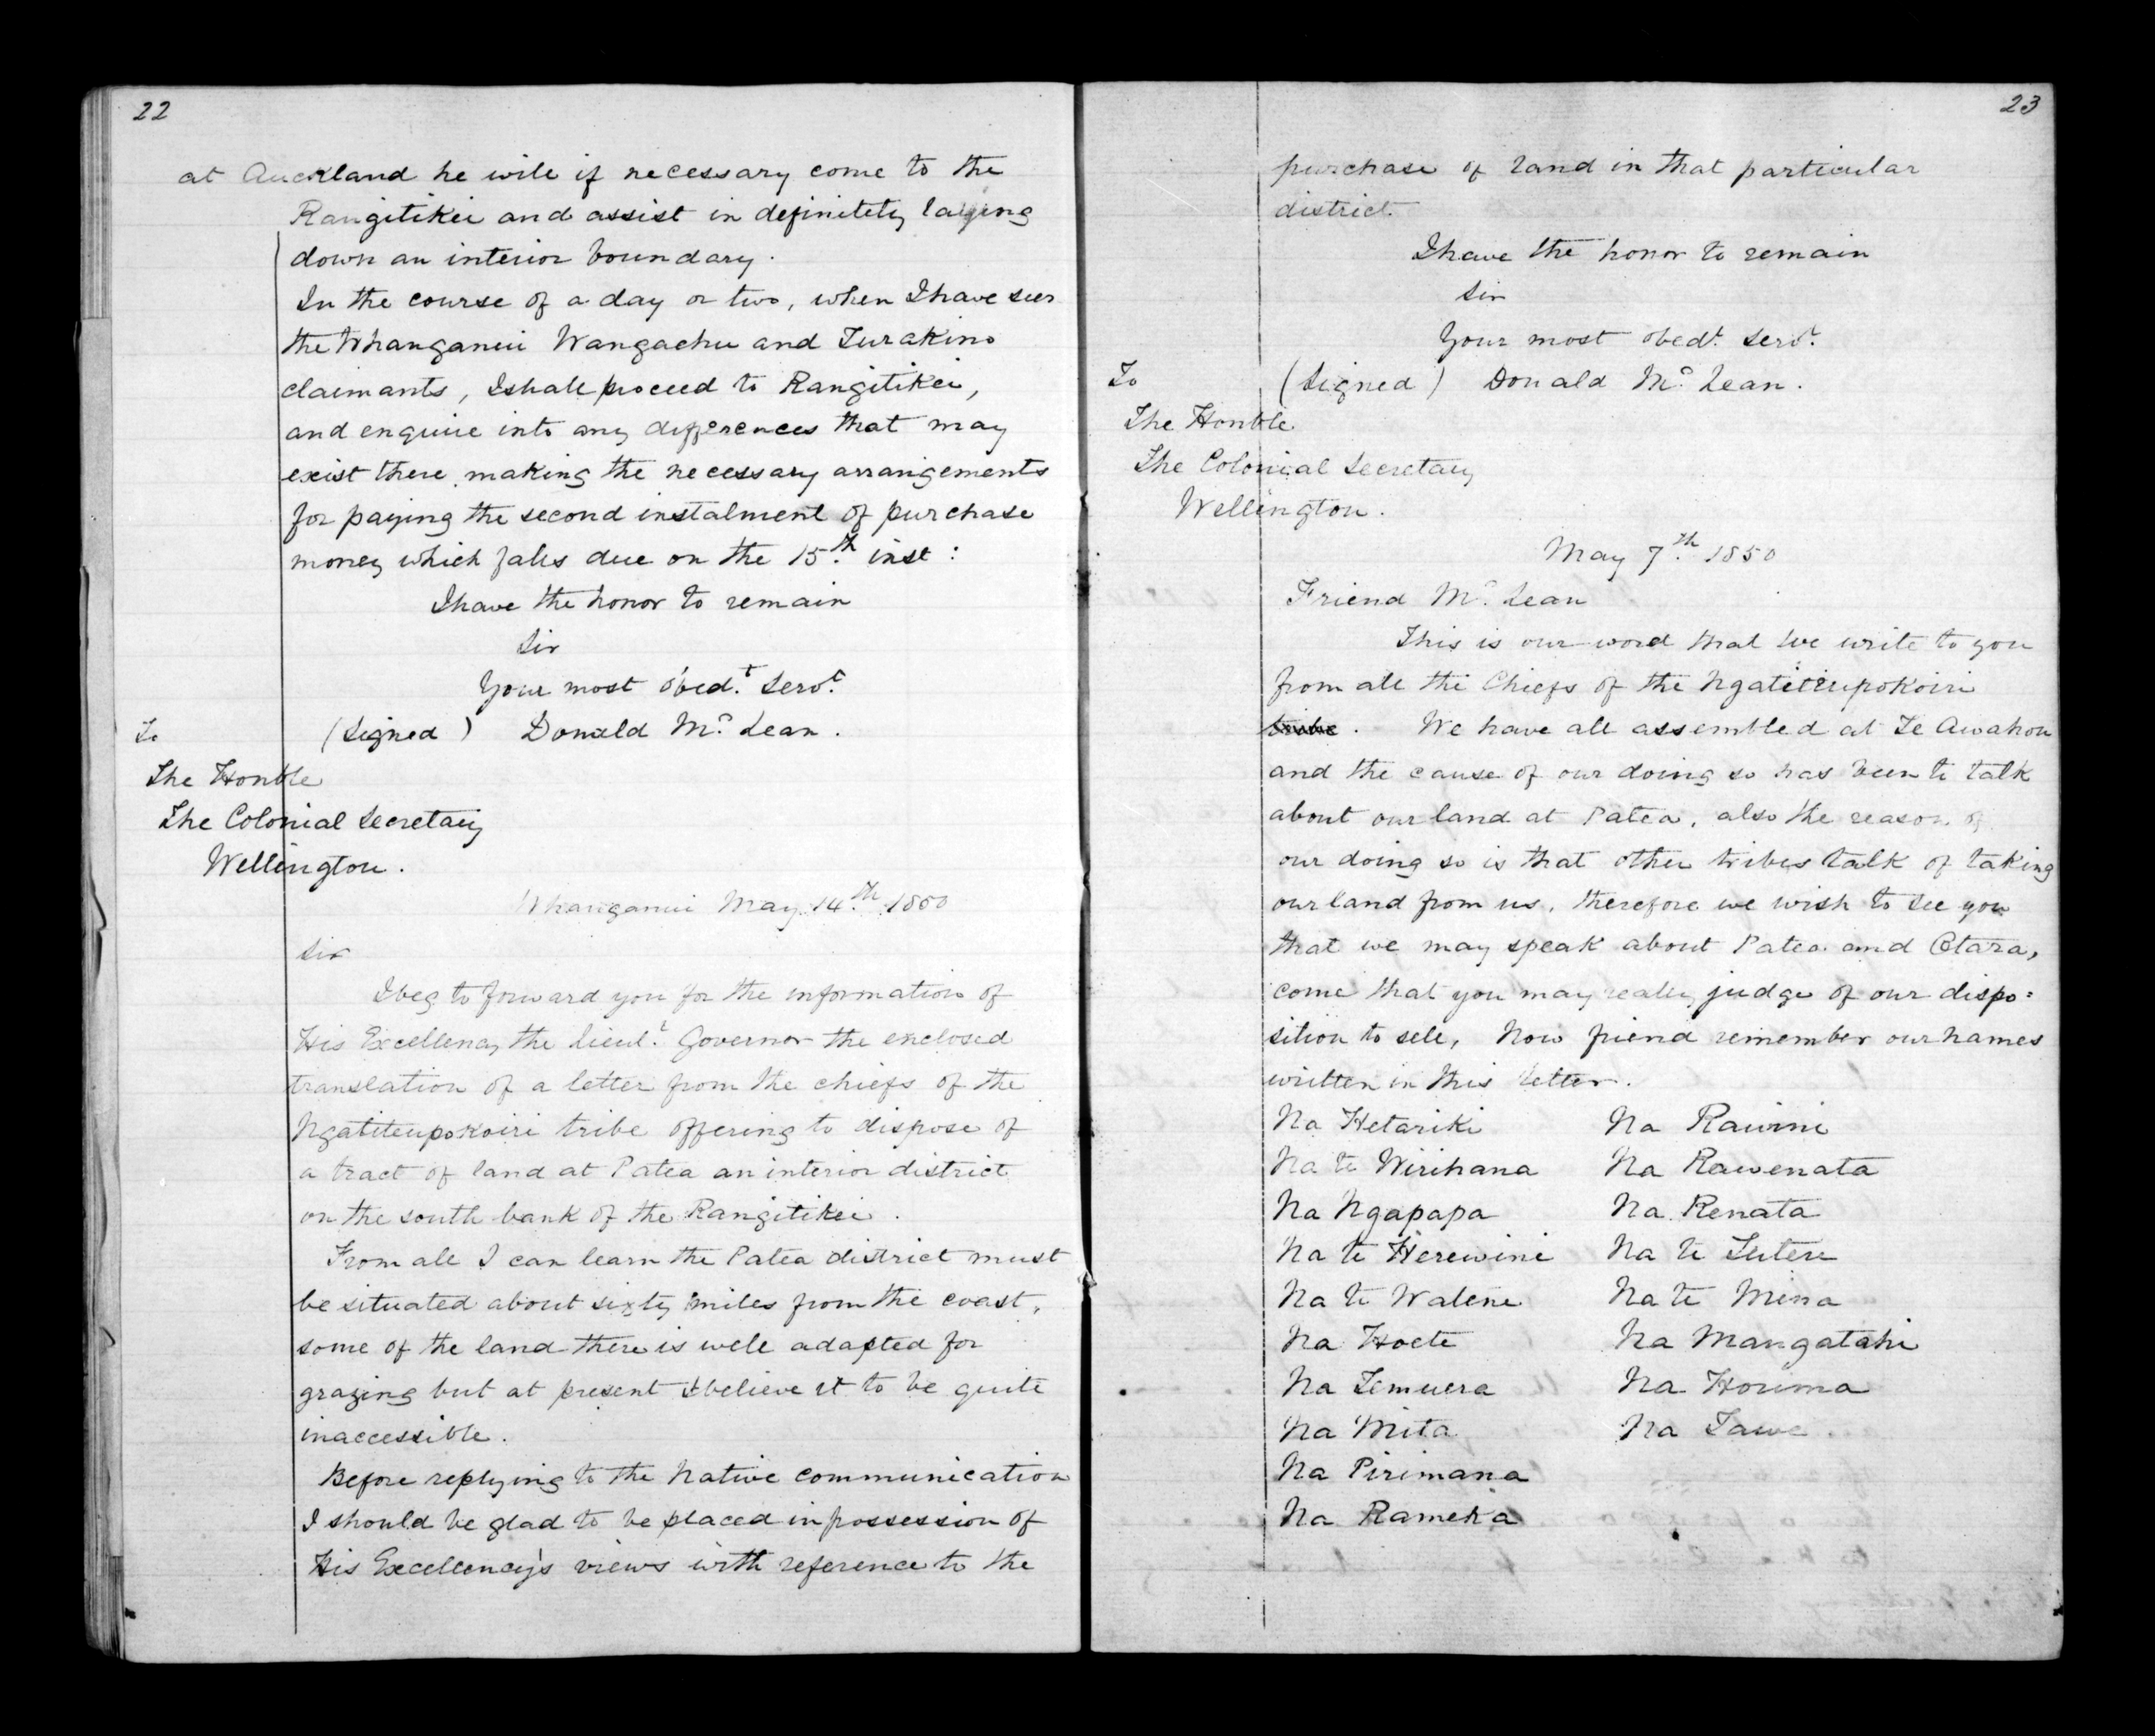 22
at Auckland he will if necessary come to the
Rangitikei and assist in definitely laying
down an interior boundary.
In the course of a day or two, when I have seen
the Whanganui Wangaehu and Turakino
claimants, I shall proceed to Rangitikei,
and enquire into any differences that may
exist there, making the necessary arrangements
for paying the second instalment of purchase
money which falls due on the 15th. inst:
I have the honor to remain
Sir
Your most obedt. Servt.
(Signed) Donald Mc. Lean.
To
The Honble
The Colonial Secretary
Wellington.
Whanganui May 14th. 1850
Sir
I beg to forward you for the information of
His Excellency the Lieut. Governor the enclosed
translation of a letter from the chiefs of the
Ngatiteupokoiri tribe offering to dispose of
a tract of land at Patea an interior district
on the south bank of the Rangitikei.
From all I can learn the Patea district must
be situated about sixty miles from the coast,
some of the land there is well adapted for
grazing but at present I believe it to be quite
inaccessible.
Before replying to the Native communication
I should be glad to be placed in possession of
His Excellency's views with reference to the
23
purchase of land in that particular
district.
I have the honor to remain
Sir
Your most obedt. Servt.
(Signed) Donald Mc. Lean.
To
The Honble
The Colonial Secretary
Wellington.
May 7th. 1850
Friend Mc. Lean
This is our word that we write to you
from all the Chiefs of the Ngatiteupokoiri
tribe. We have all assembled at Te Awahou
and the cause of our doing so has been to talk
about our land at Patea, also the reason of
our doing so is that other tribes talk of taking
our land from us, therefore we wish to see you
that we may speak about Patea and Otara,
come that you may really judge of our dispo=
sition to sell, Now friend remember our names
written in this letter.
Na Hetariki Na Rawini
Na te Wirihana Na Rawenata
Na Ngapapa Na Renata
Na te Herewini Na te Tutere
Na te Watene Na te Mina
Na Hoete Na Mangatahi
Na Temuera Na Houma
Na Mita Na Tawe
Na Pirimana
Na Rameka